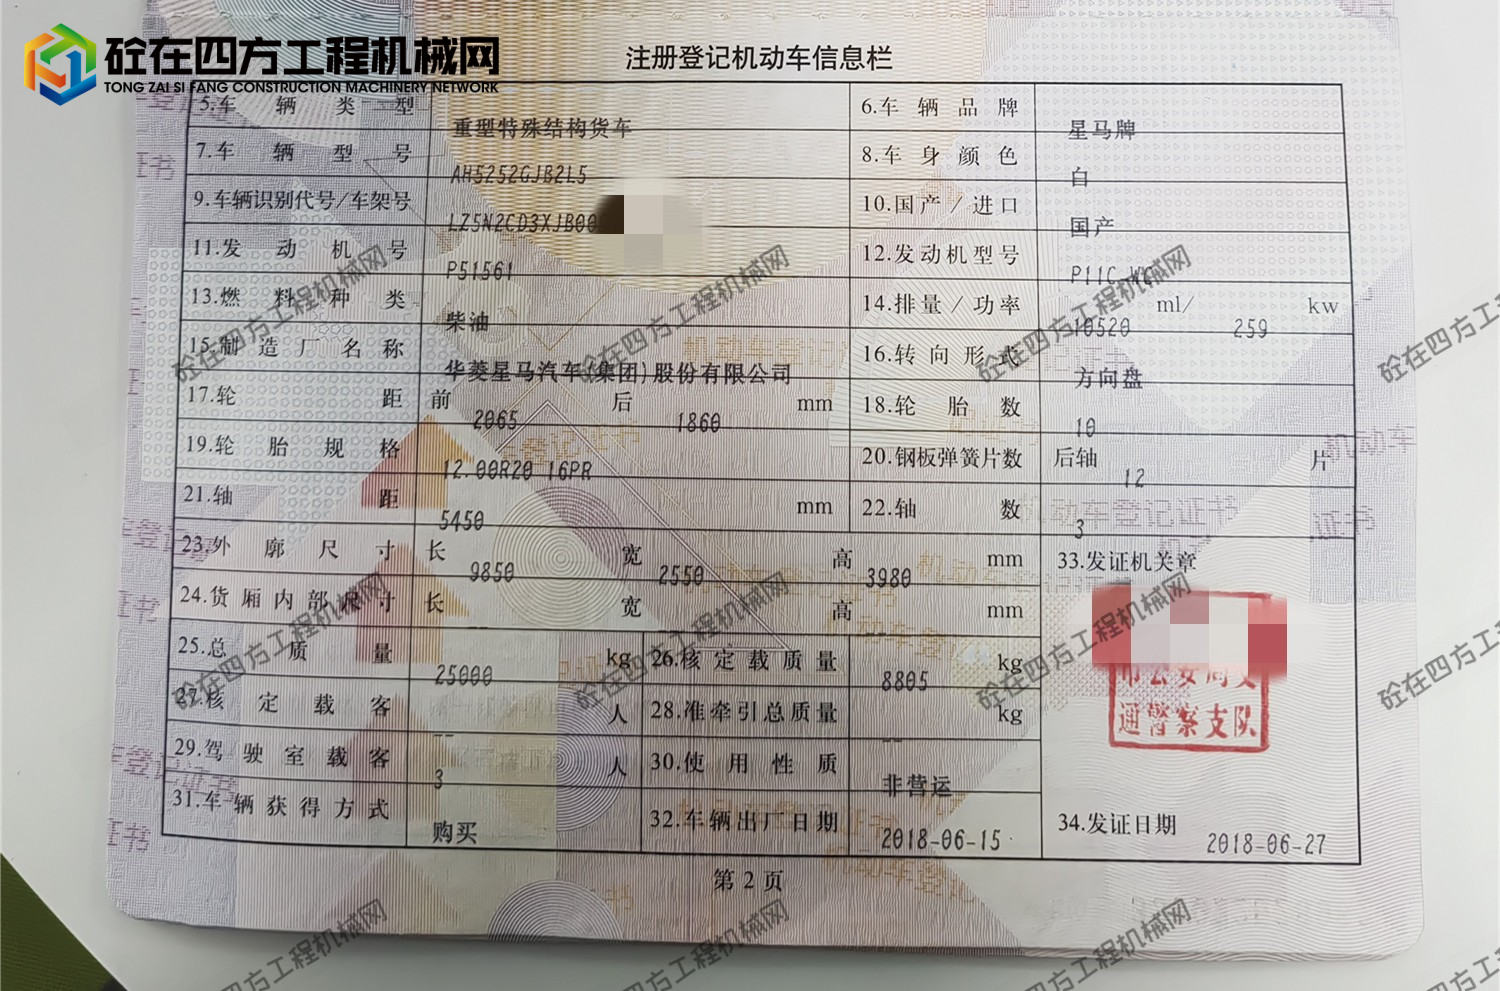 砼在四方工程机械网
TONG ZAI SI FANG CONSTRUCTION MACHINERY NETWORK
注册登记机动车信息栏
5.车辆类型 重型特殊结构货车 6.车辆品牌 星马牌
7.车辆型号 AH5252GJB2L5 8.车身颜色 白
9.车辆识别代号/车架号 LZ5N2CD3XJB00 10.国产/进口 国产
11.发动机号 P51561 12.发动机型号 P11C
13.燃料种类 柴油 14.排量/功率 10520 ml/ 259 kw
15.制造厂名称 华菱星马汽车(集团)股份有限公司 16.转向形式 方向盘
17.轮距 前 2065 后 1860 mm 18.轮胎数 10
19.轮胎规格 12.00R20 16PR 20.钢板弹簧片数 后轴 12 片
21.轴距 5450 mm 22.轴数 3
23.外廓尺寸 长 9850 宽 2550 高 3980 mm 33.发证机关章
24.货厢内部尺寸 长 -- 宽 高 mm
25.总质量 25000 kg 26.核定载质量 8805 kg
市公安局交
27.核定载客 -- 人 28.准牵引总质量 -- kg
通警察支队
29.驾驶室载客 3 人 30.使用性质 非营运
31.车辆获得方式 购买 32.车辆出厂日期 2018-06-15 34.发证日期 2018-06-27
第2页
砼在四方工程机械网
砼在四方工程机械网
砼在四方工程机械网
砼在四方工程机械网